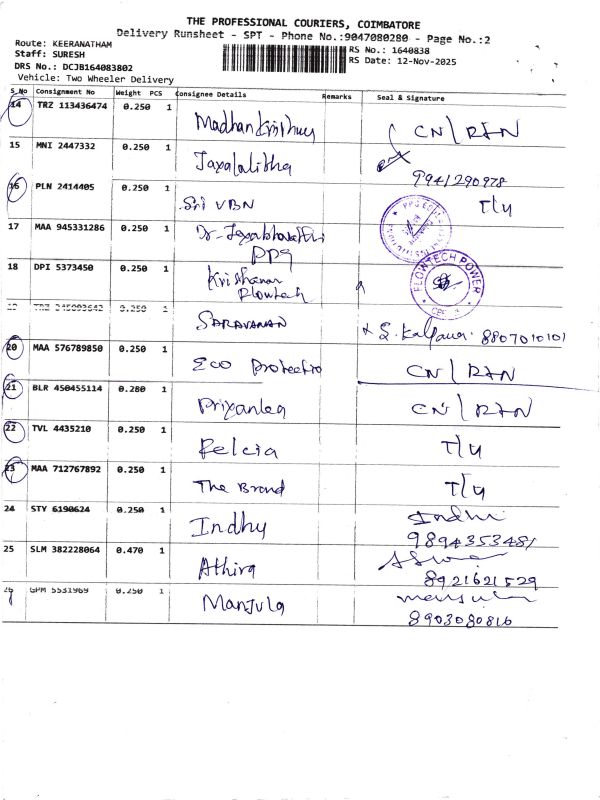 THE PROFESSIONAL COURIERS, COIMBATORE
Delivery Runsheet - SPT - Phone No.:9047080280 - Page No.:2
Route: KEERANATHAM
Staff: SURESH
DRS No.: DCJB164083802
Vehicle: Two Wheeler Delivery
RS No.: 1640838
RS Date: 12-Nov-2025
S_No Consignment No Weight PCS Consignee Details Remarks Seal & Signature
14 TRZ 113436474 0.250 1 CN/RTN
15 MNI 2447332 0.250 1 Jayalalitha 9941290978
16 PLN 2414405 0.250 1 Sri VBN T/4
17 MAA 945331286 0.250 1 PPG
18 DPI 5373450 0.250 1 Krishanan Flowtech FLOWTECH POWER
0.250 1 SARAVANAN 8807010101
20 MAA 576789850 0.250 1 Eco Protectio CN/RTN
21 BLR 450455114 0.280 1 CN/RTN
22 TVL 4435210 0.250 1 Felcia T/4
23 MAA 712767892 0.250 1 The Brand T/4
24 STY 6190624 0.250 1 Indhu Indhu
9894353481
25 SLM 382228064 0.470 1 Athira
8921621529
26 GPM 5531969 0.250 1 Manjula
8903080816